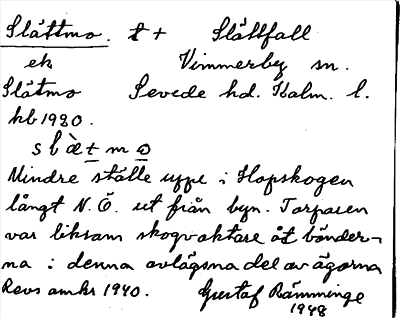 Slättmo. t + Slättfall
ek Vimmerby sn.
Slätmo Sevede hd. Kalm. l.
hb 1980.
slètmo
Mindre ställe uppe i Hopskogen
långt N.Ö. ut från byn. Torparen
var liksam skogvaktare åt bönder-
na i denna avlägsna del av ägorna
Revs omkr 1940. Gustaf Rämminge
1948